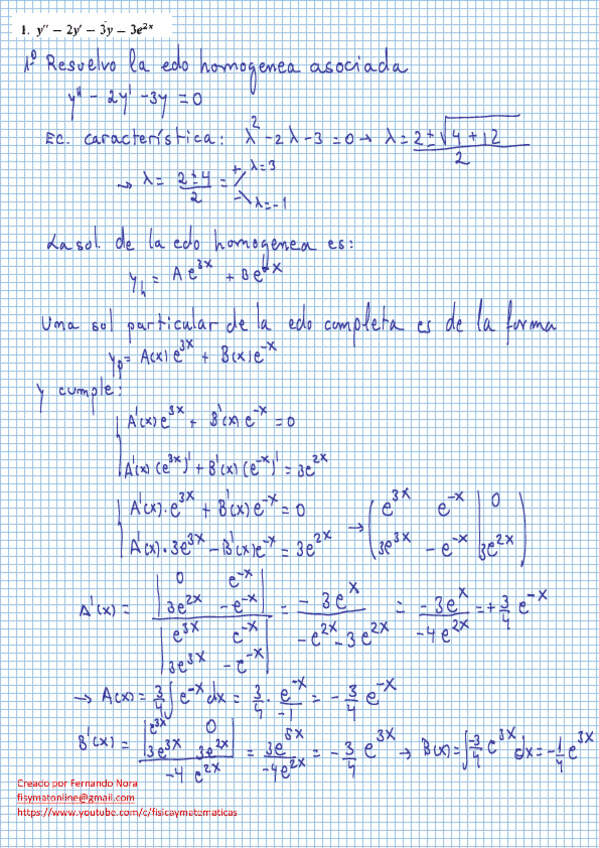 1. y'' – 2y' – 3y – 3e^{2x}
1º Resuelvo la edo homogenea asociada
y'' - 2y' - 3y = 0
Ec. característica: λ² - 2λ - 3 = 0 → λ = (2 ± √(4 + 12))/2
→ λ = (2 ± 4)/2 = + λ = 3
- λ = -1
La sol de la edo homogenea es:
y_h = A e^{3x} + B e^{-x}
Una sol particular de la edo completa es de la forma
y_p = A(x) e^{3x} + B(x) e^{-x}
y cumple:
A'(x) e^{3x} + B'(x) e^{-x} = 0
A'(x) (e^{3x})' + B'(x) (e^{-x})' = 3e^{2x}
A'(x)·e^{3x} + B'(x) e^{-x} = 0 → ( e^{3x} e^{-x} | 0
A'(x)·3e^{3x} - B'(x) e^{-x} = 3e^{2x} 3e^{3x} -e^{-x} | 3e^{2x} )
A'(x) = |0 e^{-x}; 3e^{2x} -e^{-x}| / |e^{3x} e^{-x}; 3e^{3x} -e^{-x}| = -3e^{x} / (-e^{2x} - 3e^{2x}) = -3e^{x} / -4e^{2x} = + 3/4 e^{-x}
→ A(x) = 3/4 ∫ e^{-x} dx = 3/4 · e^{-x}/-1 = - 3/4 e^{-x}
B'(x) = |e^{3x} 0; 3e^{3x} 3e^{2x}| / -4 e^{2x} = 3e^{5x} / -4e^{2x} = - 3/4 e^{3x} → B(x) = ∫ -3/4 e^{3x} dx = - 1/4 e^{3x}
Creado por Fernando Nora
fisymatonline@gmail.com
https://www.youtube.com/c/fisicaymatematicas